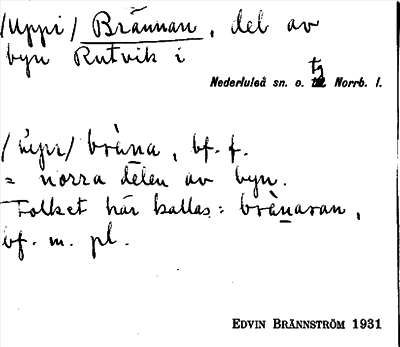 /Uppi/ Brännan, del av
byn Rutvik i
Nederluleå sn. o. tg Norrb. l.
/upi/ bràna, bf. f.
= norra delen av byn.
Folket här kallas: brànaran,
bf. m. pl.
EDVIN BRÄNNSTRÖM 1931